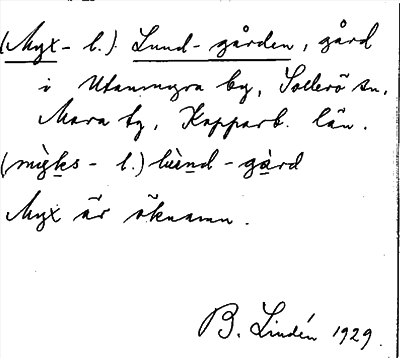 (Myx- l.) Lund-gården, gård
i Utanmyra by, Sollerö sn,
Mora tg, Kopparb. län.
(mỳks- l.) lùnd-gàrd
Myx är öknamn.
B. Lindén 1929.